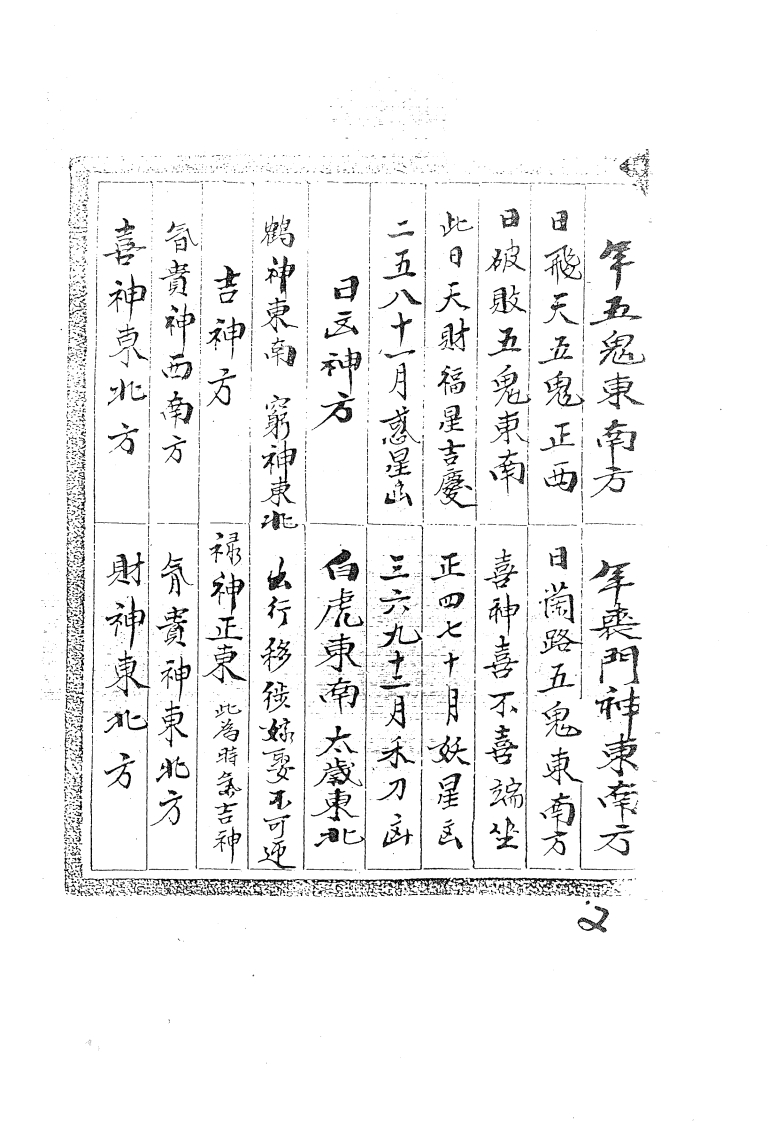 年五鬼東南方 年喪門神東南方
日飛天五鬼正西 日蘭路五鬼東南方
日破敗五鬼東南 喜神喜不喜端坐
此日天財福星吉慶 正四七十月妖星凶
二五八十一月惑星凶 三六九十二月禾刀凶
日凶神方 白虎東南太歲東北
鶴神東南 窮神東北 出行移徙嫁娶不可迎
吉神方 祿神正東 此為時家吉神
貴神西南方 貴神東北方
喜神東北方 財神東北方
2